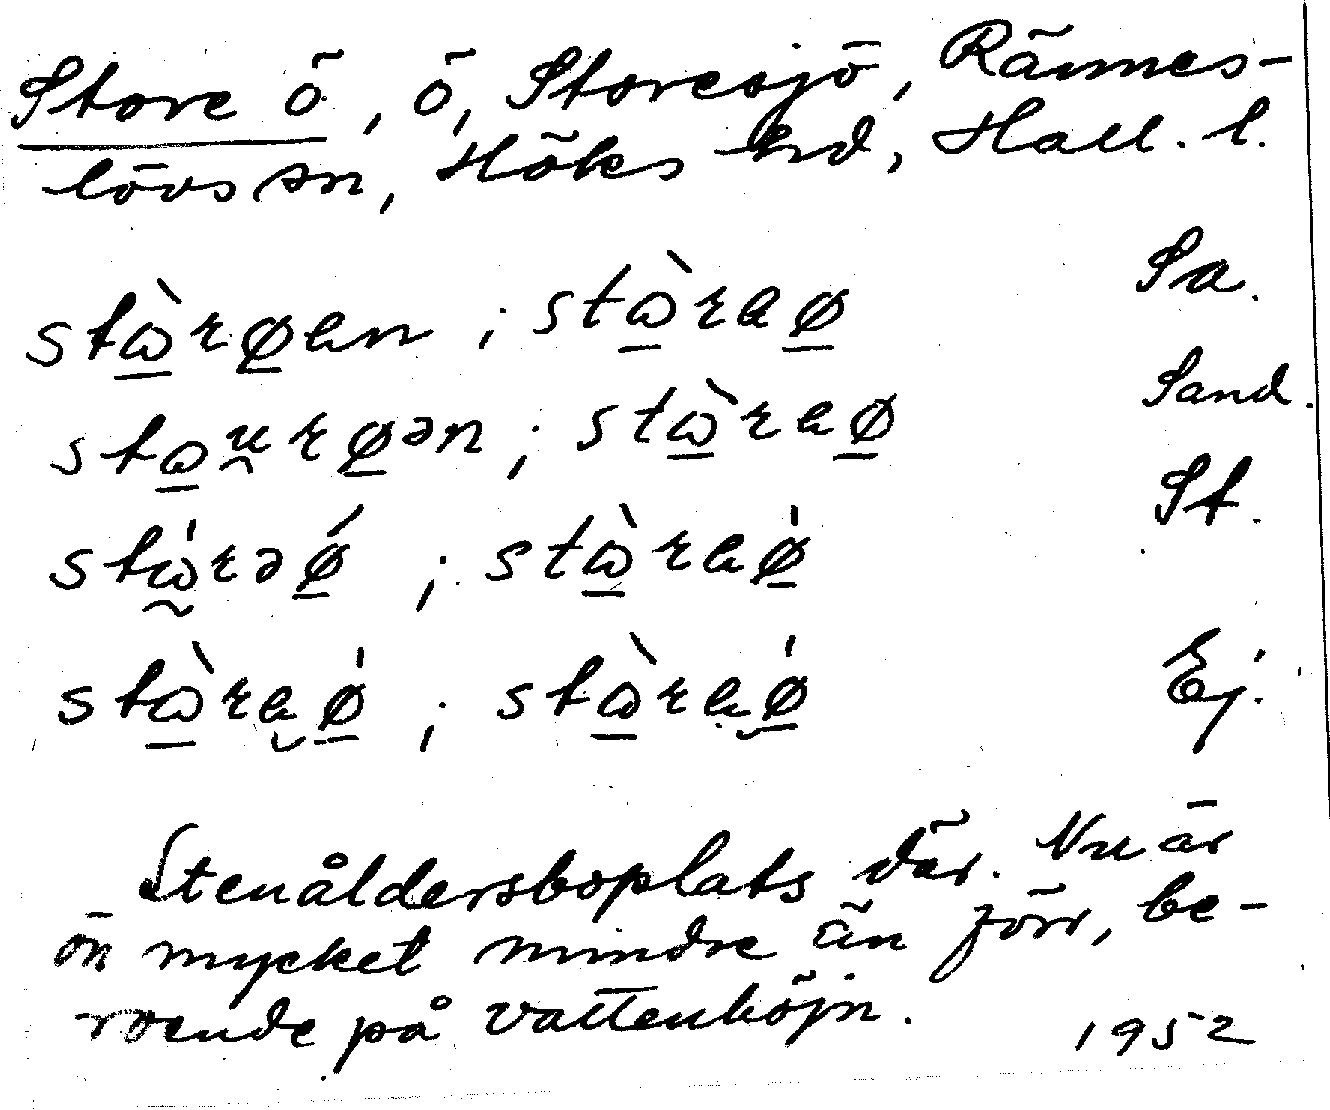 Store ö, ö, Storesjö, Rännes-
lövs sn, Höks hd, Hall. l.
stɷ̀røen ; stɷ̀raø Sa.
stɷu̯røən ; stɷ̀raø Sand.
stɷ́rəǿ ; stɷ̀raǿ St.
stɷ̀raǿ ; stɷ̀raǿ Ej.
Stenåldersboplats där. Nu är
ön mycket mindre än förr, be-
roende på vattenhöjn. 1952